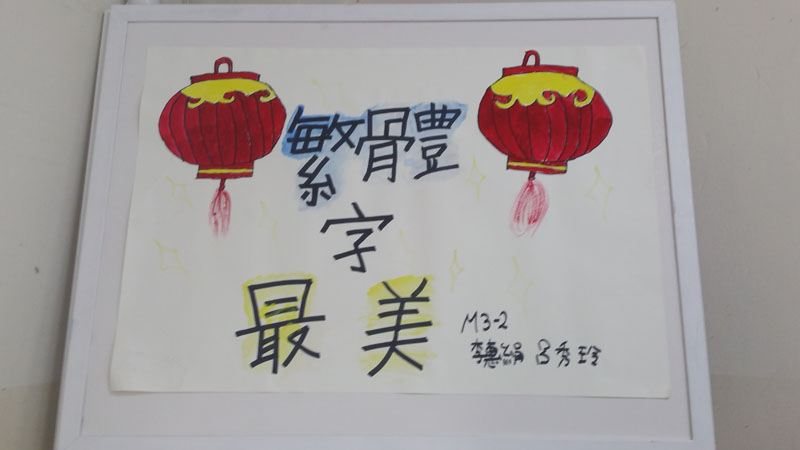 繁體
字
最美
M3-2
李惠絹 呂秀玲